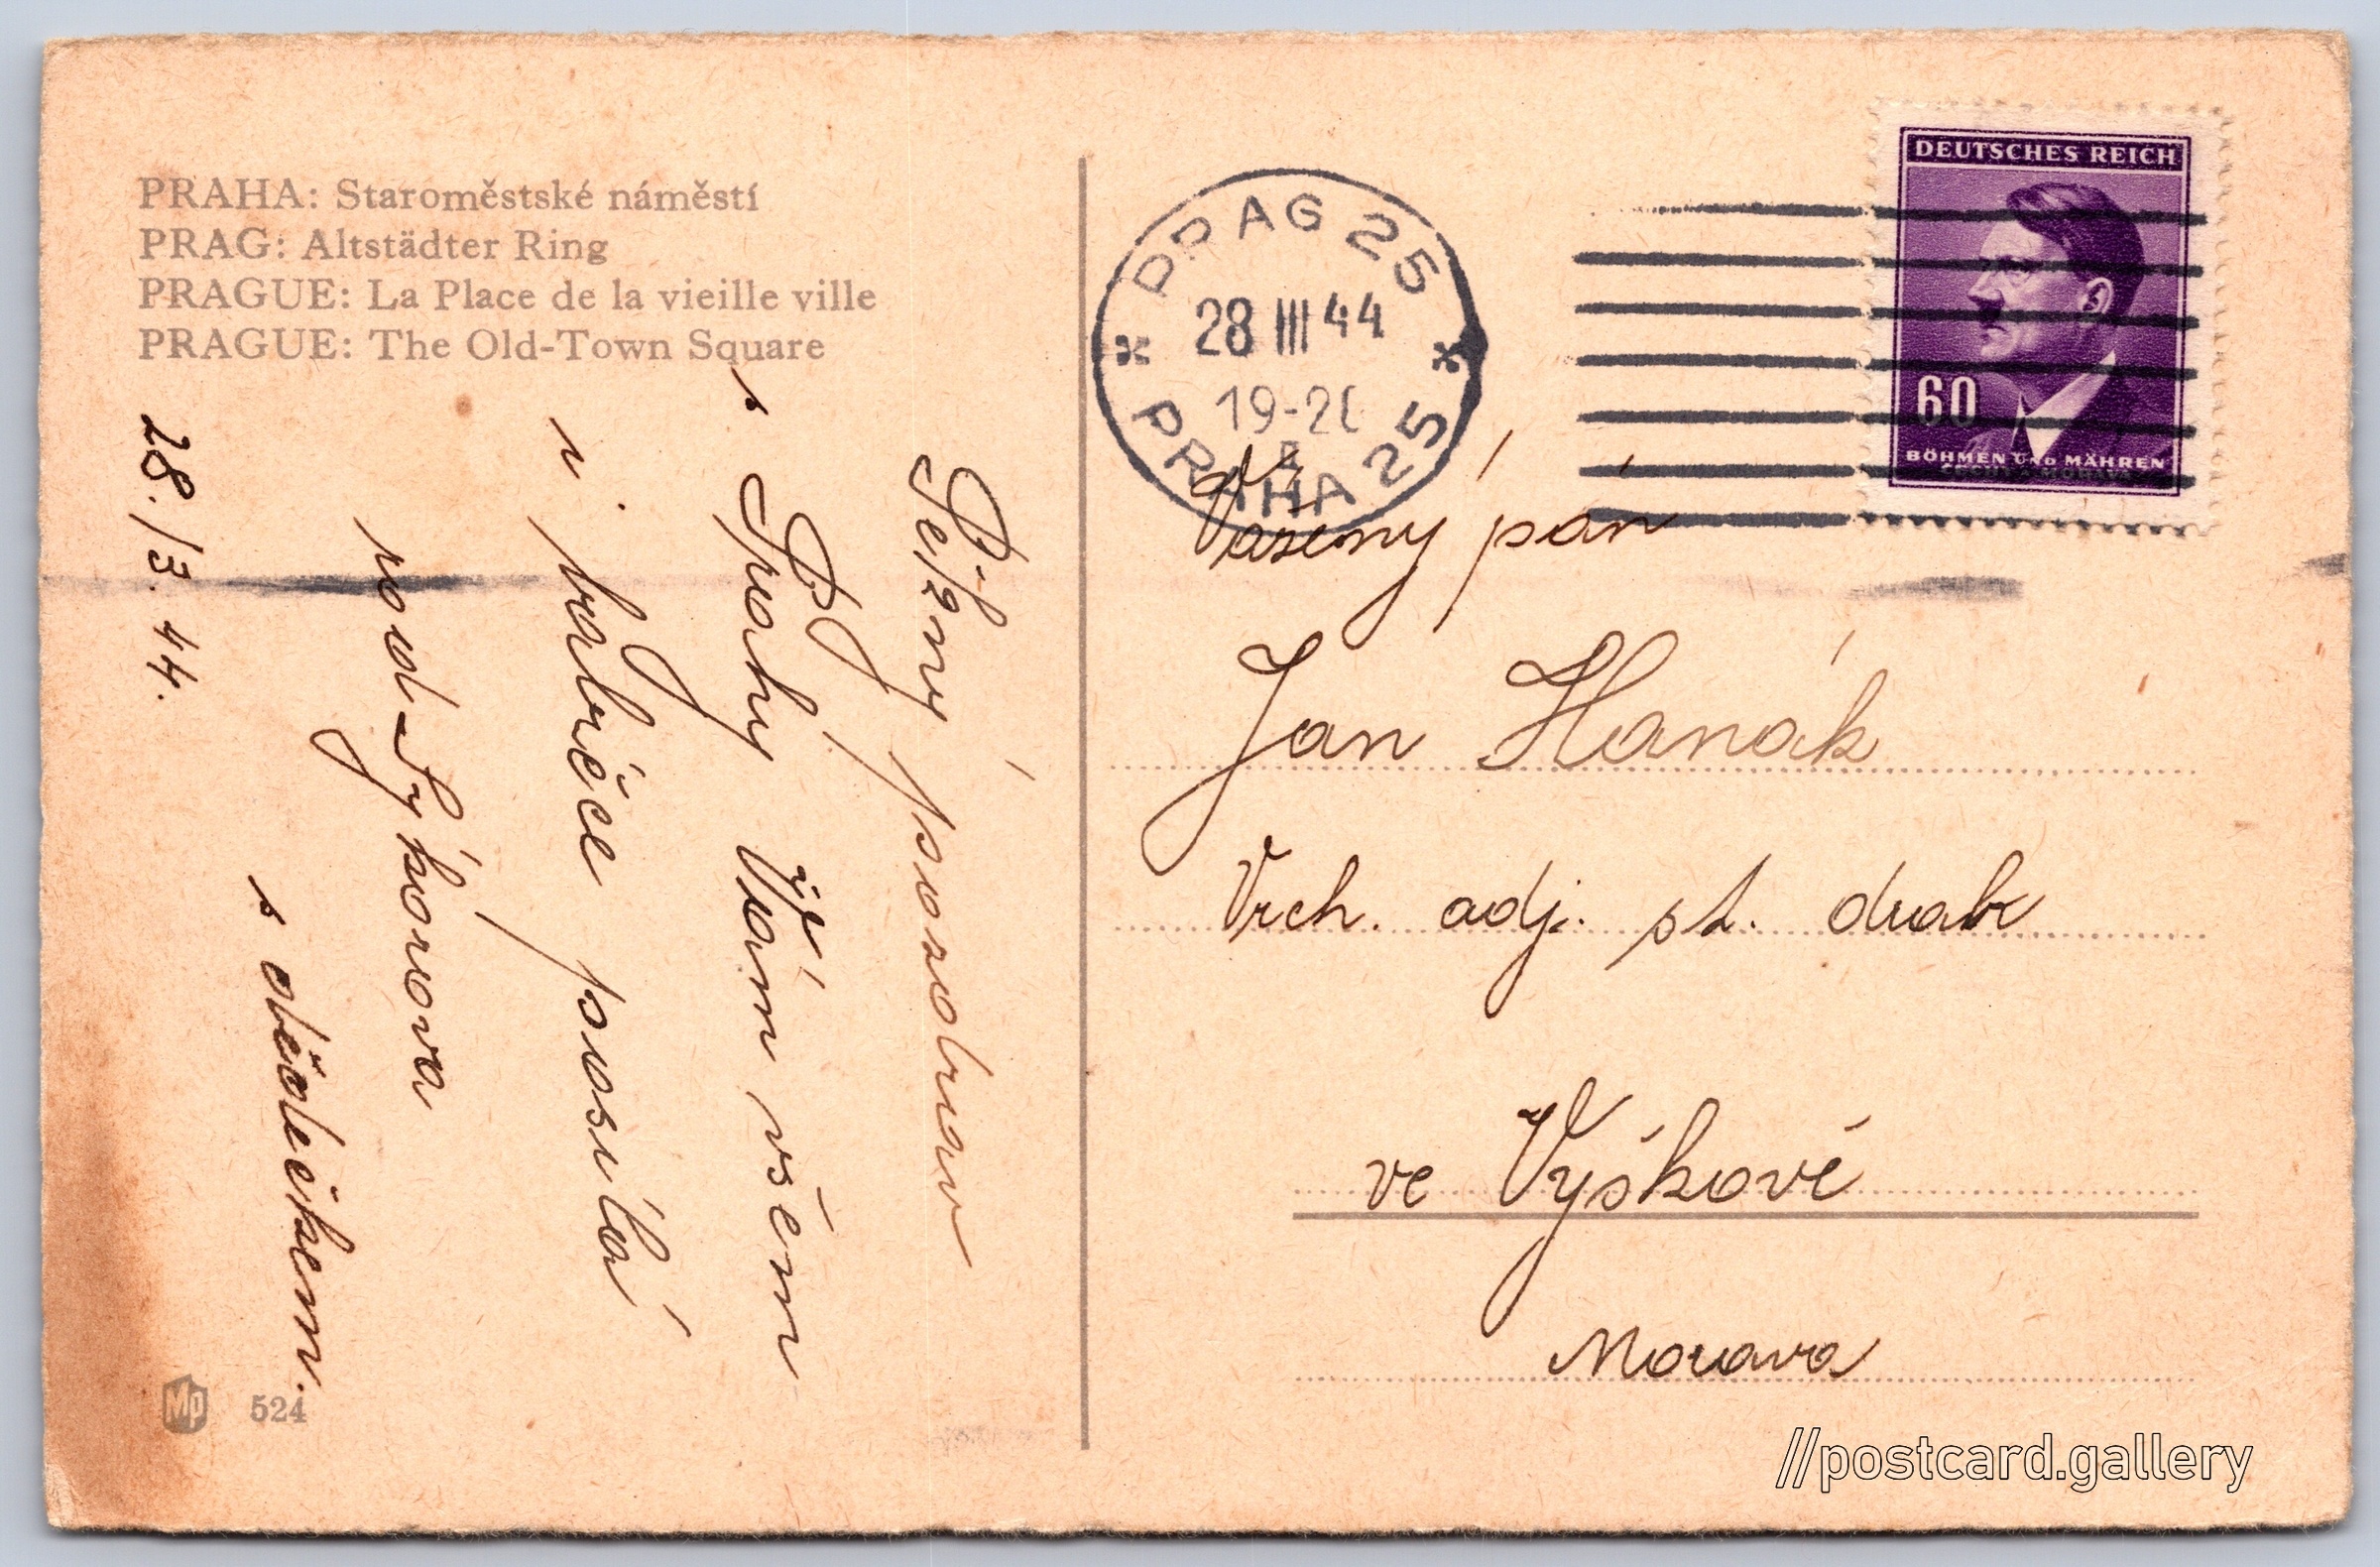 PRAHA: Staroměstské náměstí
PRAG: Altstädter Ring
PRAGUE: La Place de la vieille ville
PRAGUE: The Old-Town Square
Pěkný pozdrav
s Prahy Vám všem
i babičce posílá
rod. Sýkorova
s dědečkem.
28./3. 44.
Mp 524
PRAG 25
28 III 44
19-20
PRAHA 25
DEUTSCHES REICH
60
BÖHMEN UND MÄHREN
ČECHY A MORAVA
Vážený pán
Jan Hanák
Vrch. adj. st. drah
ve Vyškově
Morava
//postcard.gallery